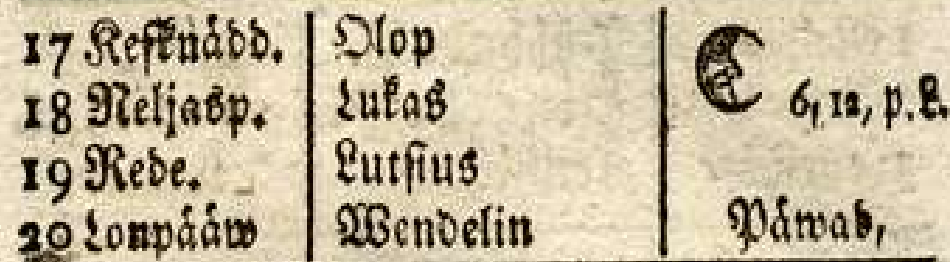 17 Keſknädd. Olop
18 Neljasp. Lukas 6, 12, p. L.
19 Rede. Lutſius
20 Lonpääw Wendelin Päwab,